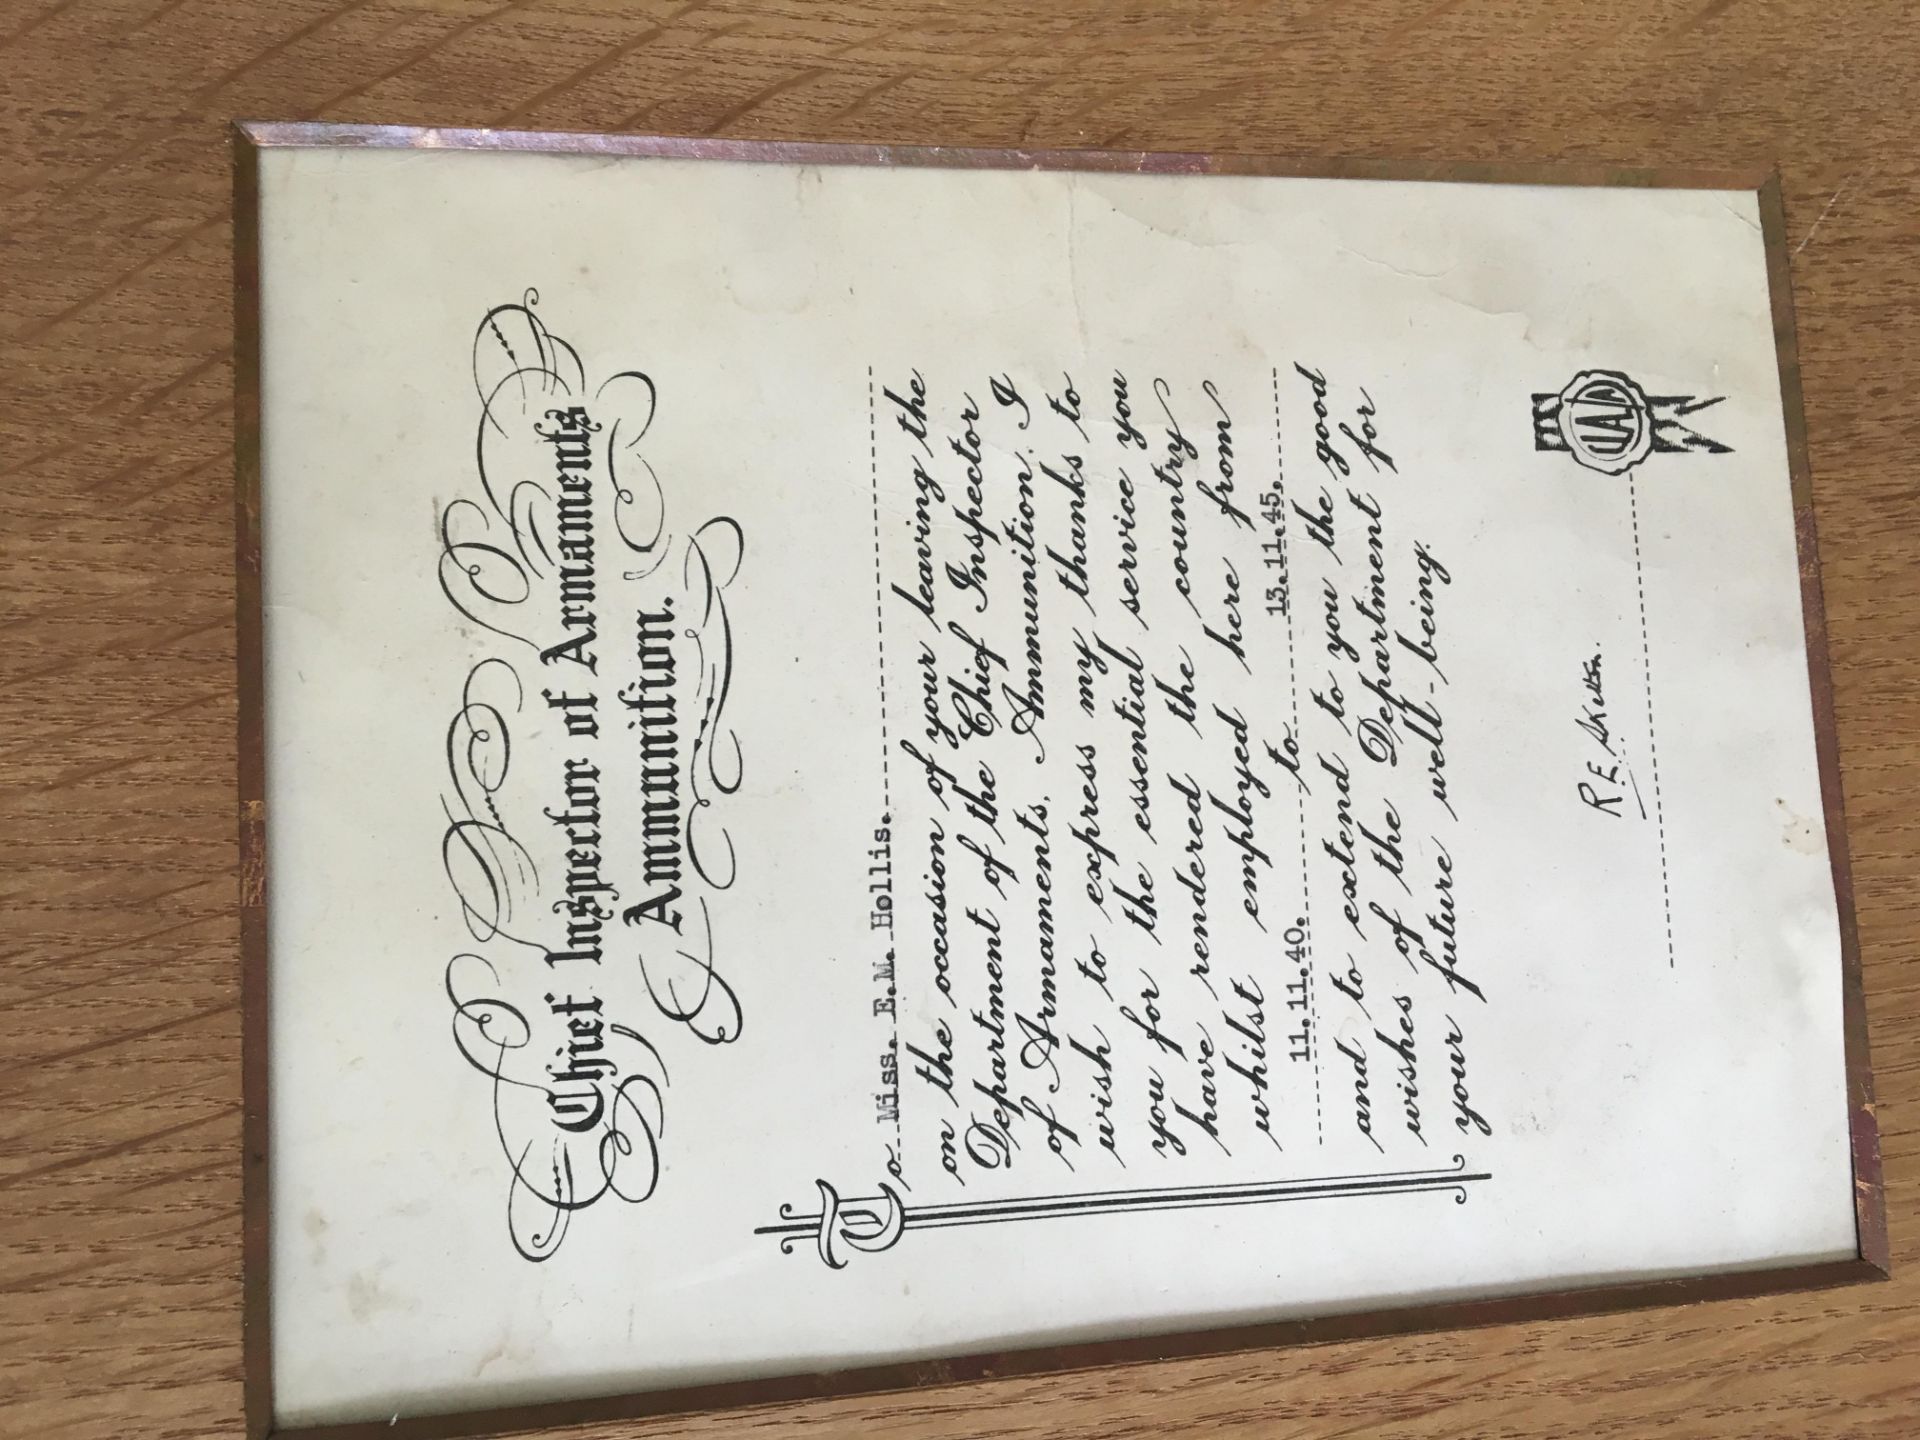 Chief Inspector of Armaments
Ammunition.
To Miss. E.M. Hollis.
on the occasion of your leaving the
Department of the Chief Inspector
of Armaments. Ammunition. I
wish to express my thanks to
you for the essential service you
have rendered the country
whilst employed here from
11.11.40. to 13.11.45.
and to extend to you the good
wishes of the Department for
your future well-being.
R.E.